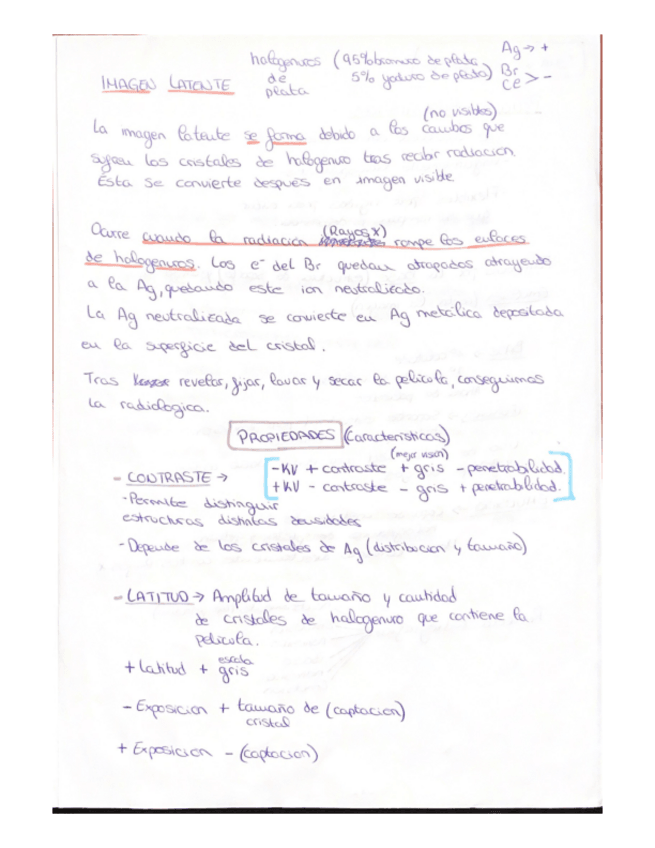 halogenuros (95% bromuro de plata Ag → +
IMAGEN LATENTE de 5% yoduro de plata) Br
plata Ce > -
(no visibles)
La imagen latente se forma debido a los cambios que
sufren los cristales de halogenuro tras recibir radiación.
Esta se convierte después en imagen visible
(Rayos X)
Ocurre cuando la radiación rompe los enlaces
de halogenuros. Los e⁻ del Br quedan atrapados atrayendo
a la Ag, quedando este ion neutralizado.
La Ag neutralizada se convierte en Ag metálica depositada
en la superficie del cristal.
Tras revelar, fijar, lavar y secar la película, conseguimos
la radiologica.
PROPIEDADES (Características)
(mejor vision)
- CONTRASTE → -KV + contraste + gris - penetrabilidad.
+KV - contraste - gris + penetrabilidad.
-Permite distinguir
estructuras distintas densidades
-Depende de los cristales de Ag (distribucion y tamaño)
- LATITUD → Amplitud de tamaño y cantidad
de cristales de halogenuro que contiene la
película.
+ latitud + escala gris
- Exposicion + tamaño de (captacion)
cristal
+ Exposicion - (captacion)